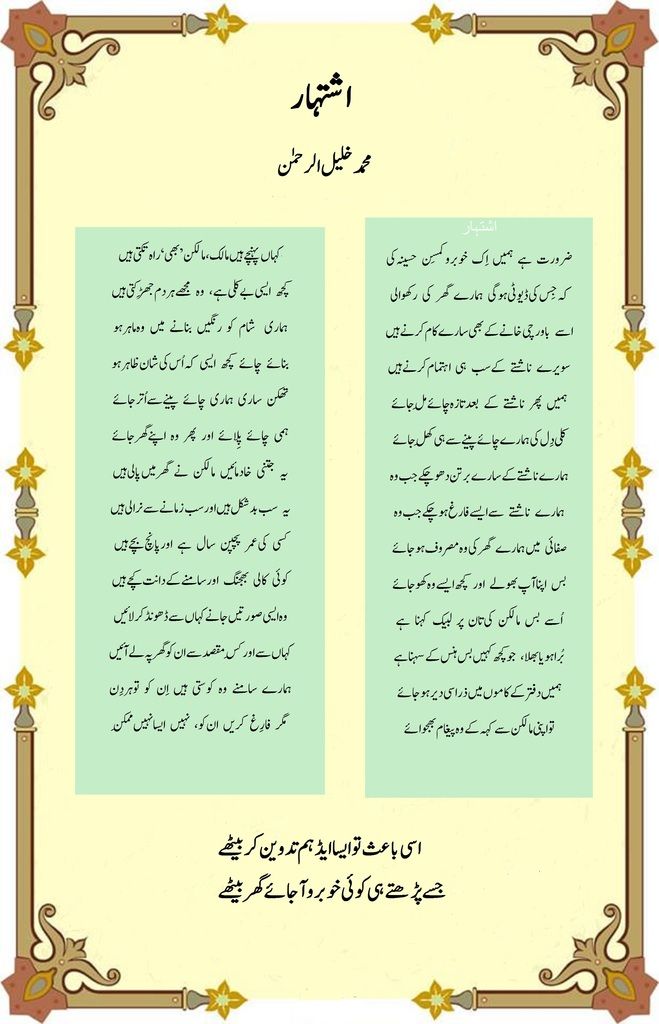 اشتہار
محمد خلیل الرحمٰن
اشتہار
ضرورت ہے ہمیں اِک خوبرو کمسِن حسینہ کی
کہ جِس کی ڈیوٹی ہوگی ہمارے گھر کی رکھوالی
اسے باورچی خانے کے بھی سارے کام کرنے ہیں
سویرے ناشتے کے سب ہی اہتمام کرنے ہیں
ہمیں پھر ناشتے کے بعد تازہ چائے مل جائے
کلی دِل کی ہمارے چائے پینے سے ہی کھل جائے
ہمارے ناشتے کے سارے برتن دھو چکے جب وہ
ہمارے ناشتے سے ایسے فارغ ہو چکے جب وہ
صفائی میں ہمارے گھر کی وہ مصروف ہو جائے
بس اپنا آپ بھولے اور کچھ ایسے وہ کھو جائے
اُسے بس مالکن کی تان پر لبیک کہنا ہے
بُرا ہو یا بھلا، جو کچھ کہیں بس ہنس کے سہنا ہے
ہمیں دفتر کے کاموں میں ذرا سی دیر ہو جائے
تو اپنی مالکن سے کہہ کے وہ پیغام بھجوائے
کہاں پہنچے ہیں مالک، مالکن ’بھی‘ راہ تکتی ہیں
کچھ ایسی بے کلی ہے، وہ مجھے ہر دم جھڑکتی ہیں
ہماری شام کو رنگیں بنانے میں وہ ماہر ہو
بنائے چائے کچھ ایسی کہ اُس کی شان ظاہر ہو
تھکن ساری ہماری چائے پینے سے اُتر جائے
ہمی چائے پِلائے اور پھر وہ اپنے گھر جائے
یہ جتنی خادمائیں مالکن نے گھر میں پالی ہیں
یہ سب بد شکل ہیں اور سب زمانے سے نرالی ہیں
کسی کی عمر پچپن سال ہے اور پانچ بچے ہیں
کوئی کالی بھجنگ اور سامنے کے دانت کچے ہیں
وہ ایسی صورتیں جانے کہاں سے ڈھونڈ کر لائیں
کہاں سے اور کس مقصد سے ان کو گھر پہ لے آئیں
ہمارے سامنے وہ کوستی ہیں اِن کو تو ہر دِن
مگر فارِغ کریں ان کو، نہیں ایسا نہیں ممکن
اسی باعث تو ایسا ایڈ ہم تدوین کر بیٹھے
جسے پڑھتے ہی کوئی خوبرو آ جائے گھر بیٹھے